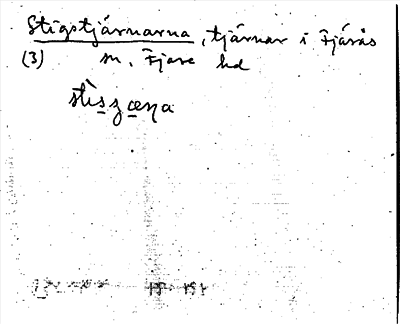 Stigstjärnarna, tjärnar i Fjärås
(3) sn, Fjäre hd
stìszæɳa